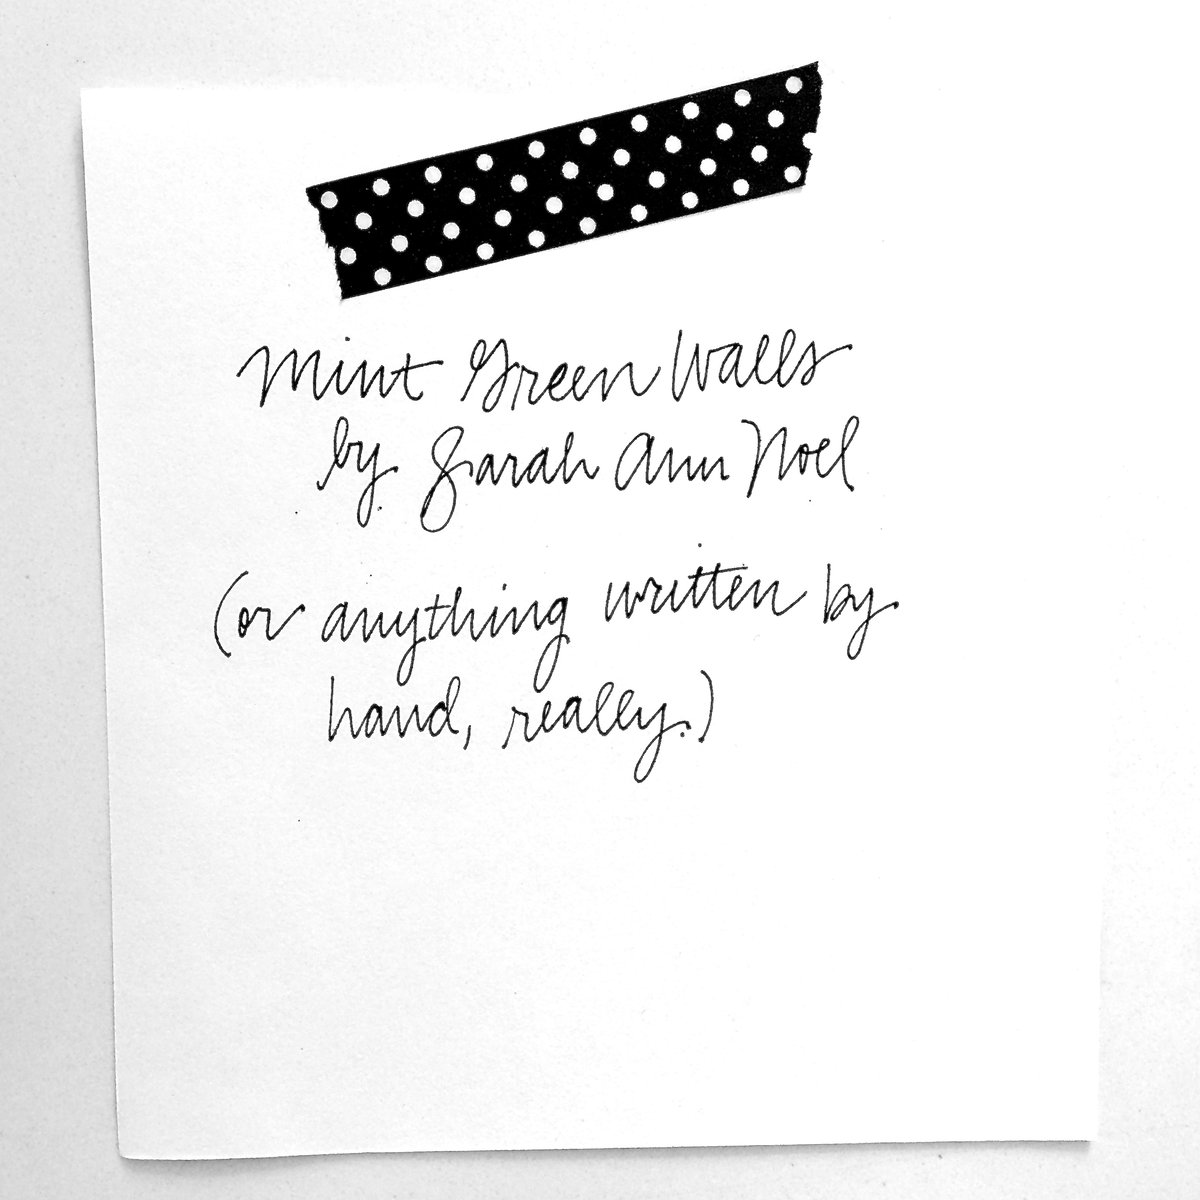 Mint Green Walls
by Sarah Ann Noel
(or anything written by
hand, really.)